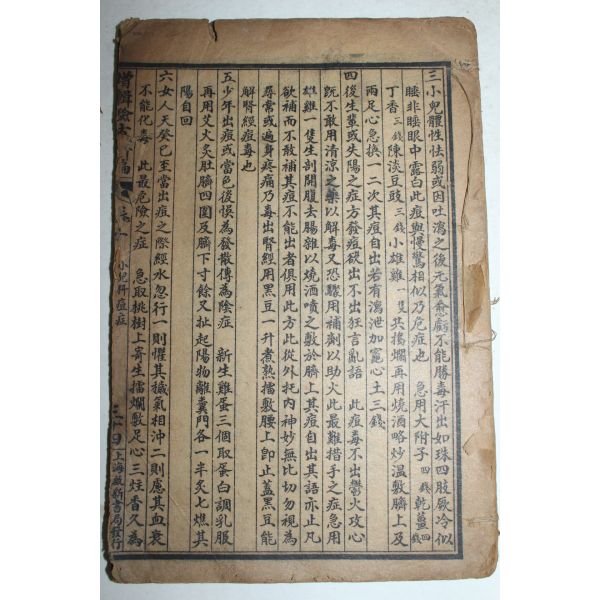 三小兒體性怯弱或因吐瀉之後元氣愈虧不能勝毒汗出如珠四肢厥冷似
睡非睡眼中露白此痘與慢驚相似乃危症也　急用大附子四錢乾薑四錢
丁香三錢陳淡豆豉三錢小雄雞一隻共搗爛再用燒酒略炒溫敷臍上及
兩足心急換一二次其痘自出若有瀉泄加竈心土三錢
四後生輩或失陽之症方發痘欲出不出狂言亂語　此痘毒不出鬱火攻心
既不敢用清涼之藥以解毒又恐驟用補劑以助火此最難措手之症急用
雄雞一隻生剖開腹去腸雜以燒酒噴之敷於臍上其痘自出其語亦止凡
欲補而不敢補其痘不能出者俱用此方此從外托內神妙無比切勿視為
尋常或遍身疼痛乃毒出腎經用黑豆一升煮熟擂敷腰上即止蓋黑豆能
解腎經痘毒也
五少年出痘或當色後悞為發散傳為陰症　新生雞蛋三個取蛋白調乳服
再用艾火炙肚臍四圍及臍下寸餘又扯起陽物離囊門各一半炙七燋其
陽自回
六女人天癸已至當出痘之際經水忽行一則懼其穢氣相沖二則慮其血衰
不能化毒　此最危險之症　急取桃樹上寄生擂爛敷足心三炷香久為
增輯驗方
小兒科痘症
上海啟新書局發行